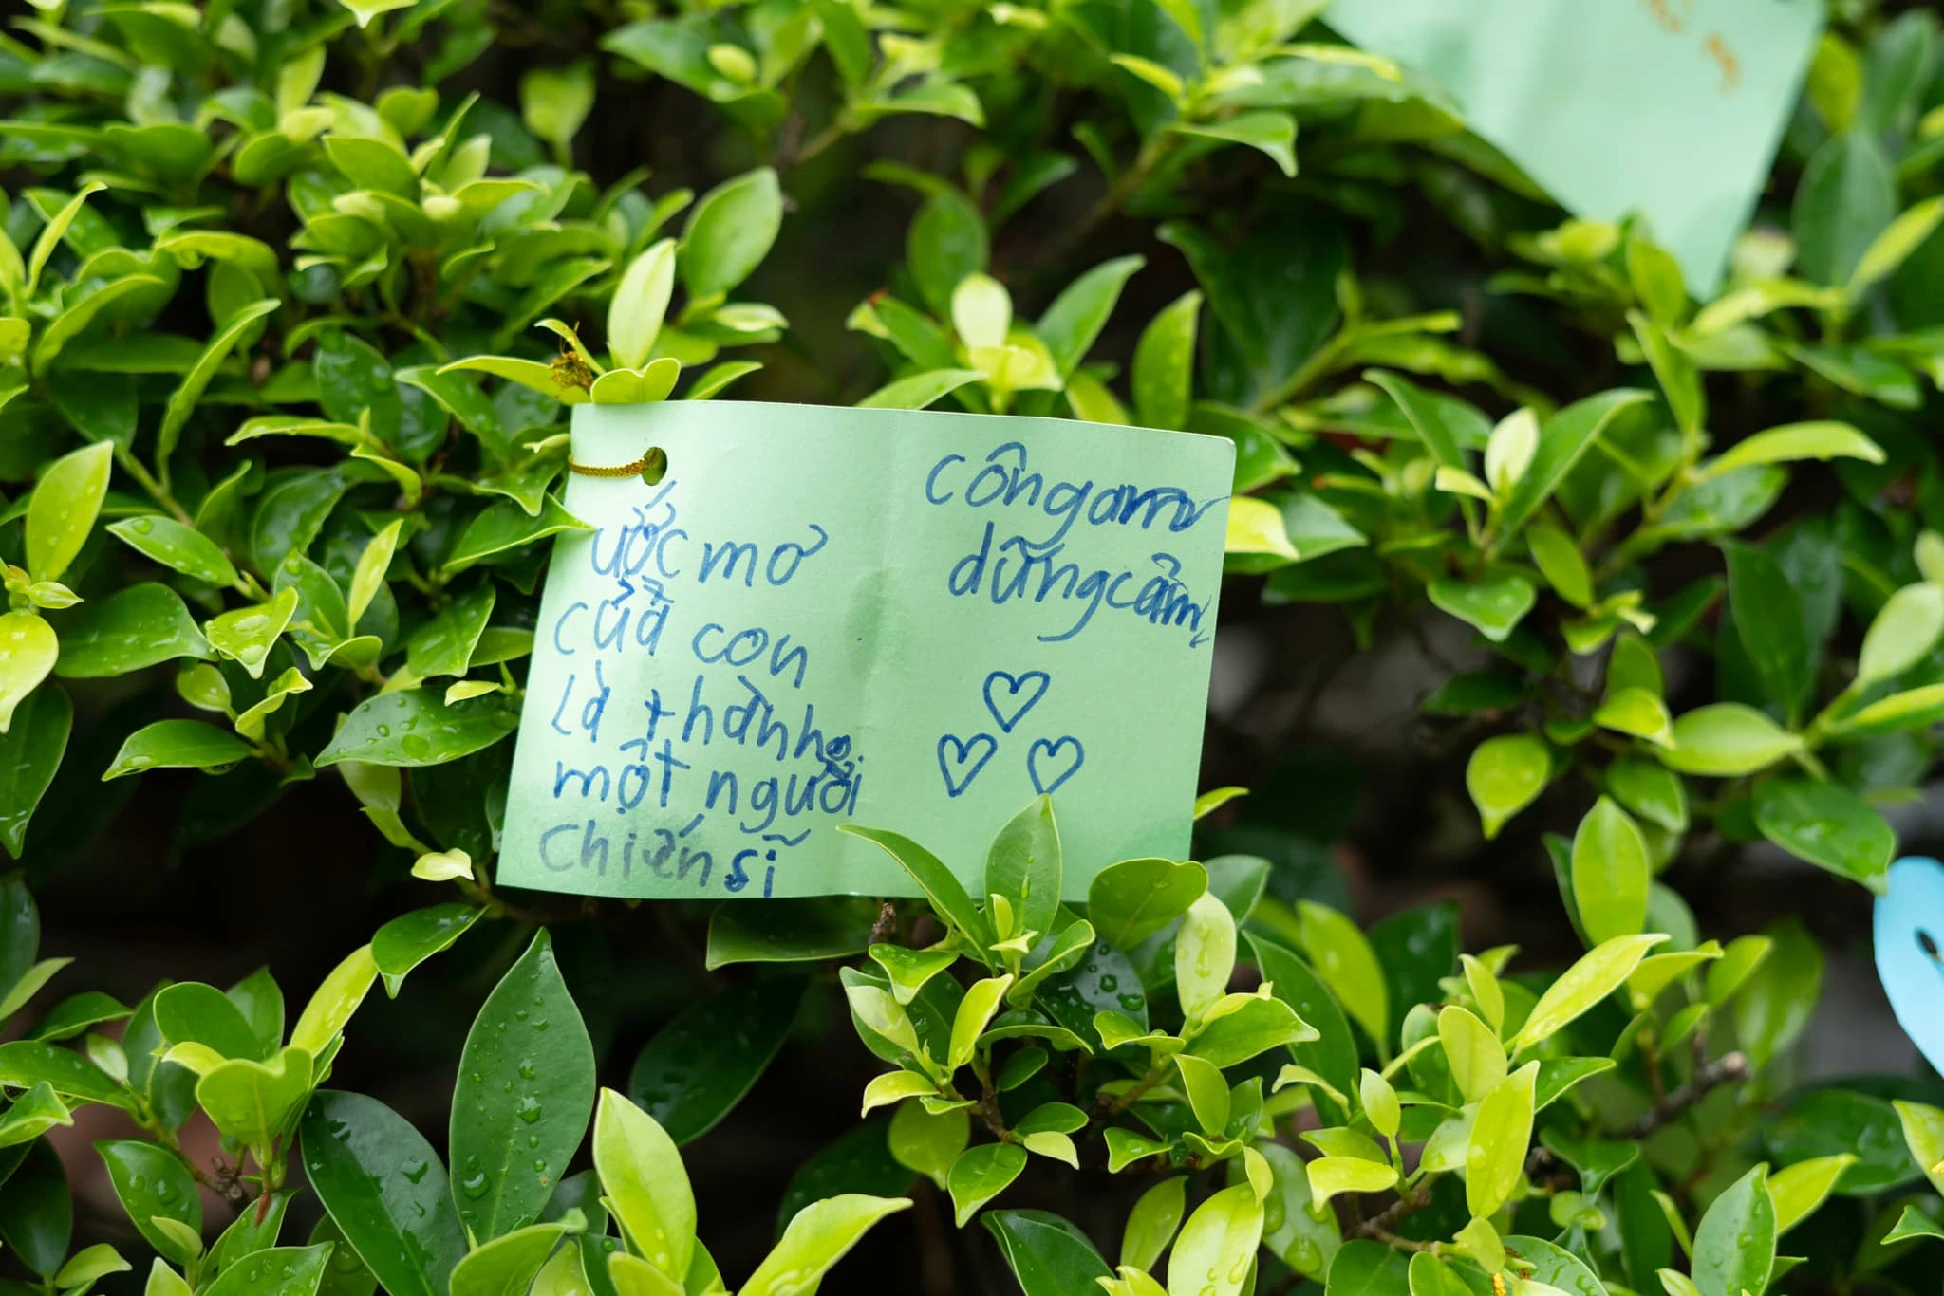 ước mơ
của con
là thành
một người
chiến sĩ
công an
dũng cảm